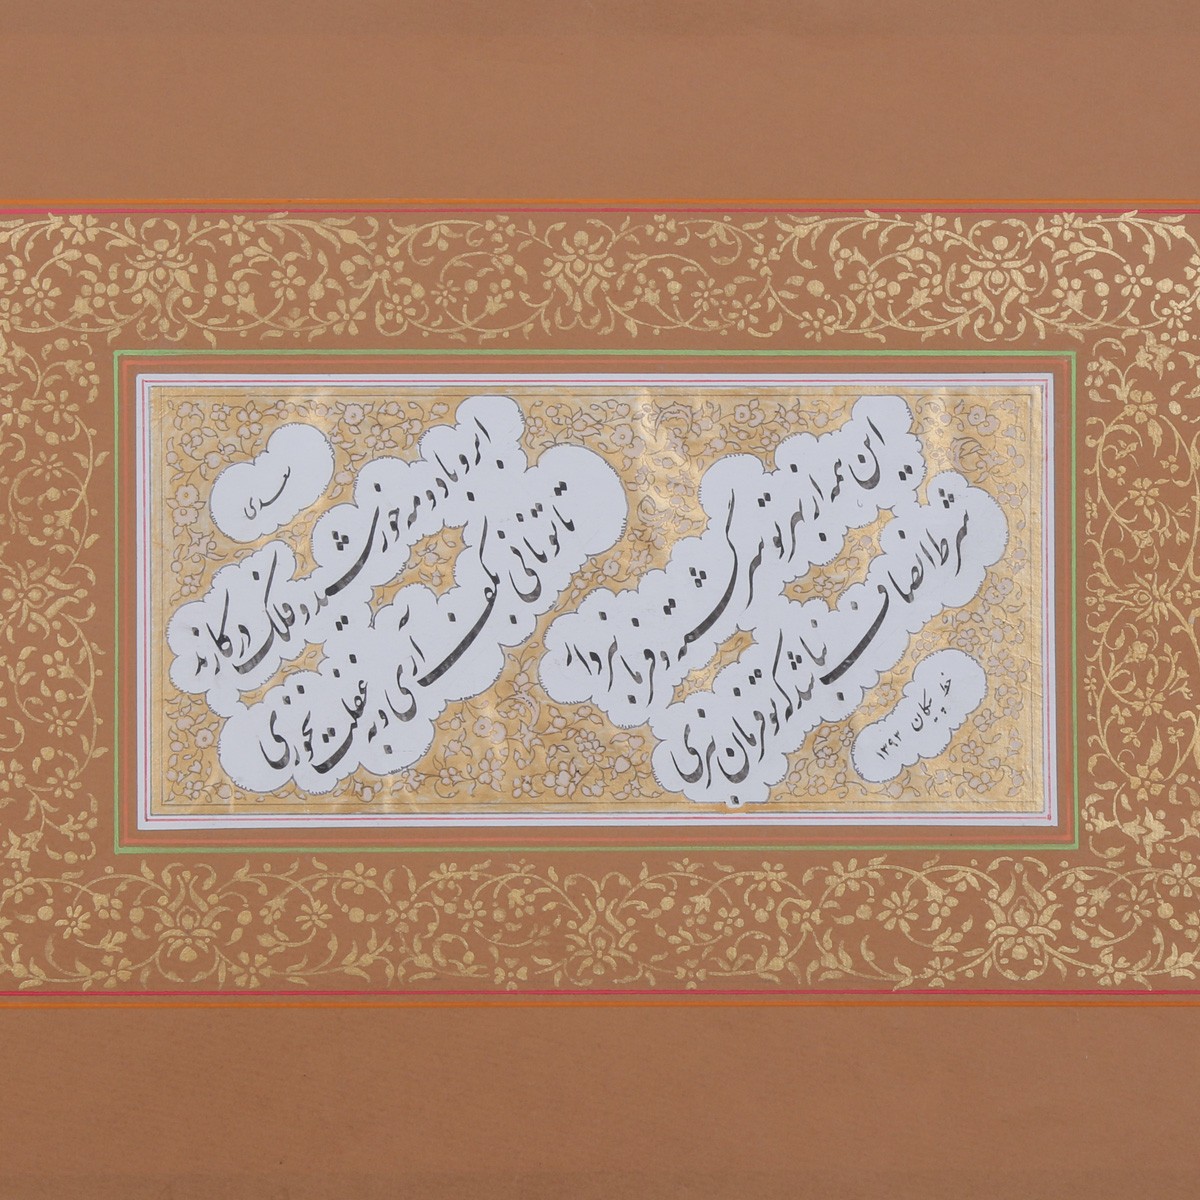 سعدی
ابر و باد و مه خورشید و فلک در کارند
تا تو نانی بکف آری و به غفلت نخوری
این همه از بهر تو سرگشته و فرمانبردار
شرط انصاف نباشد که تو فرمان نبری
خط پیکان ۱۳۹۲